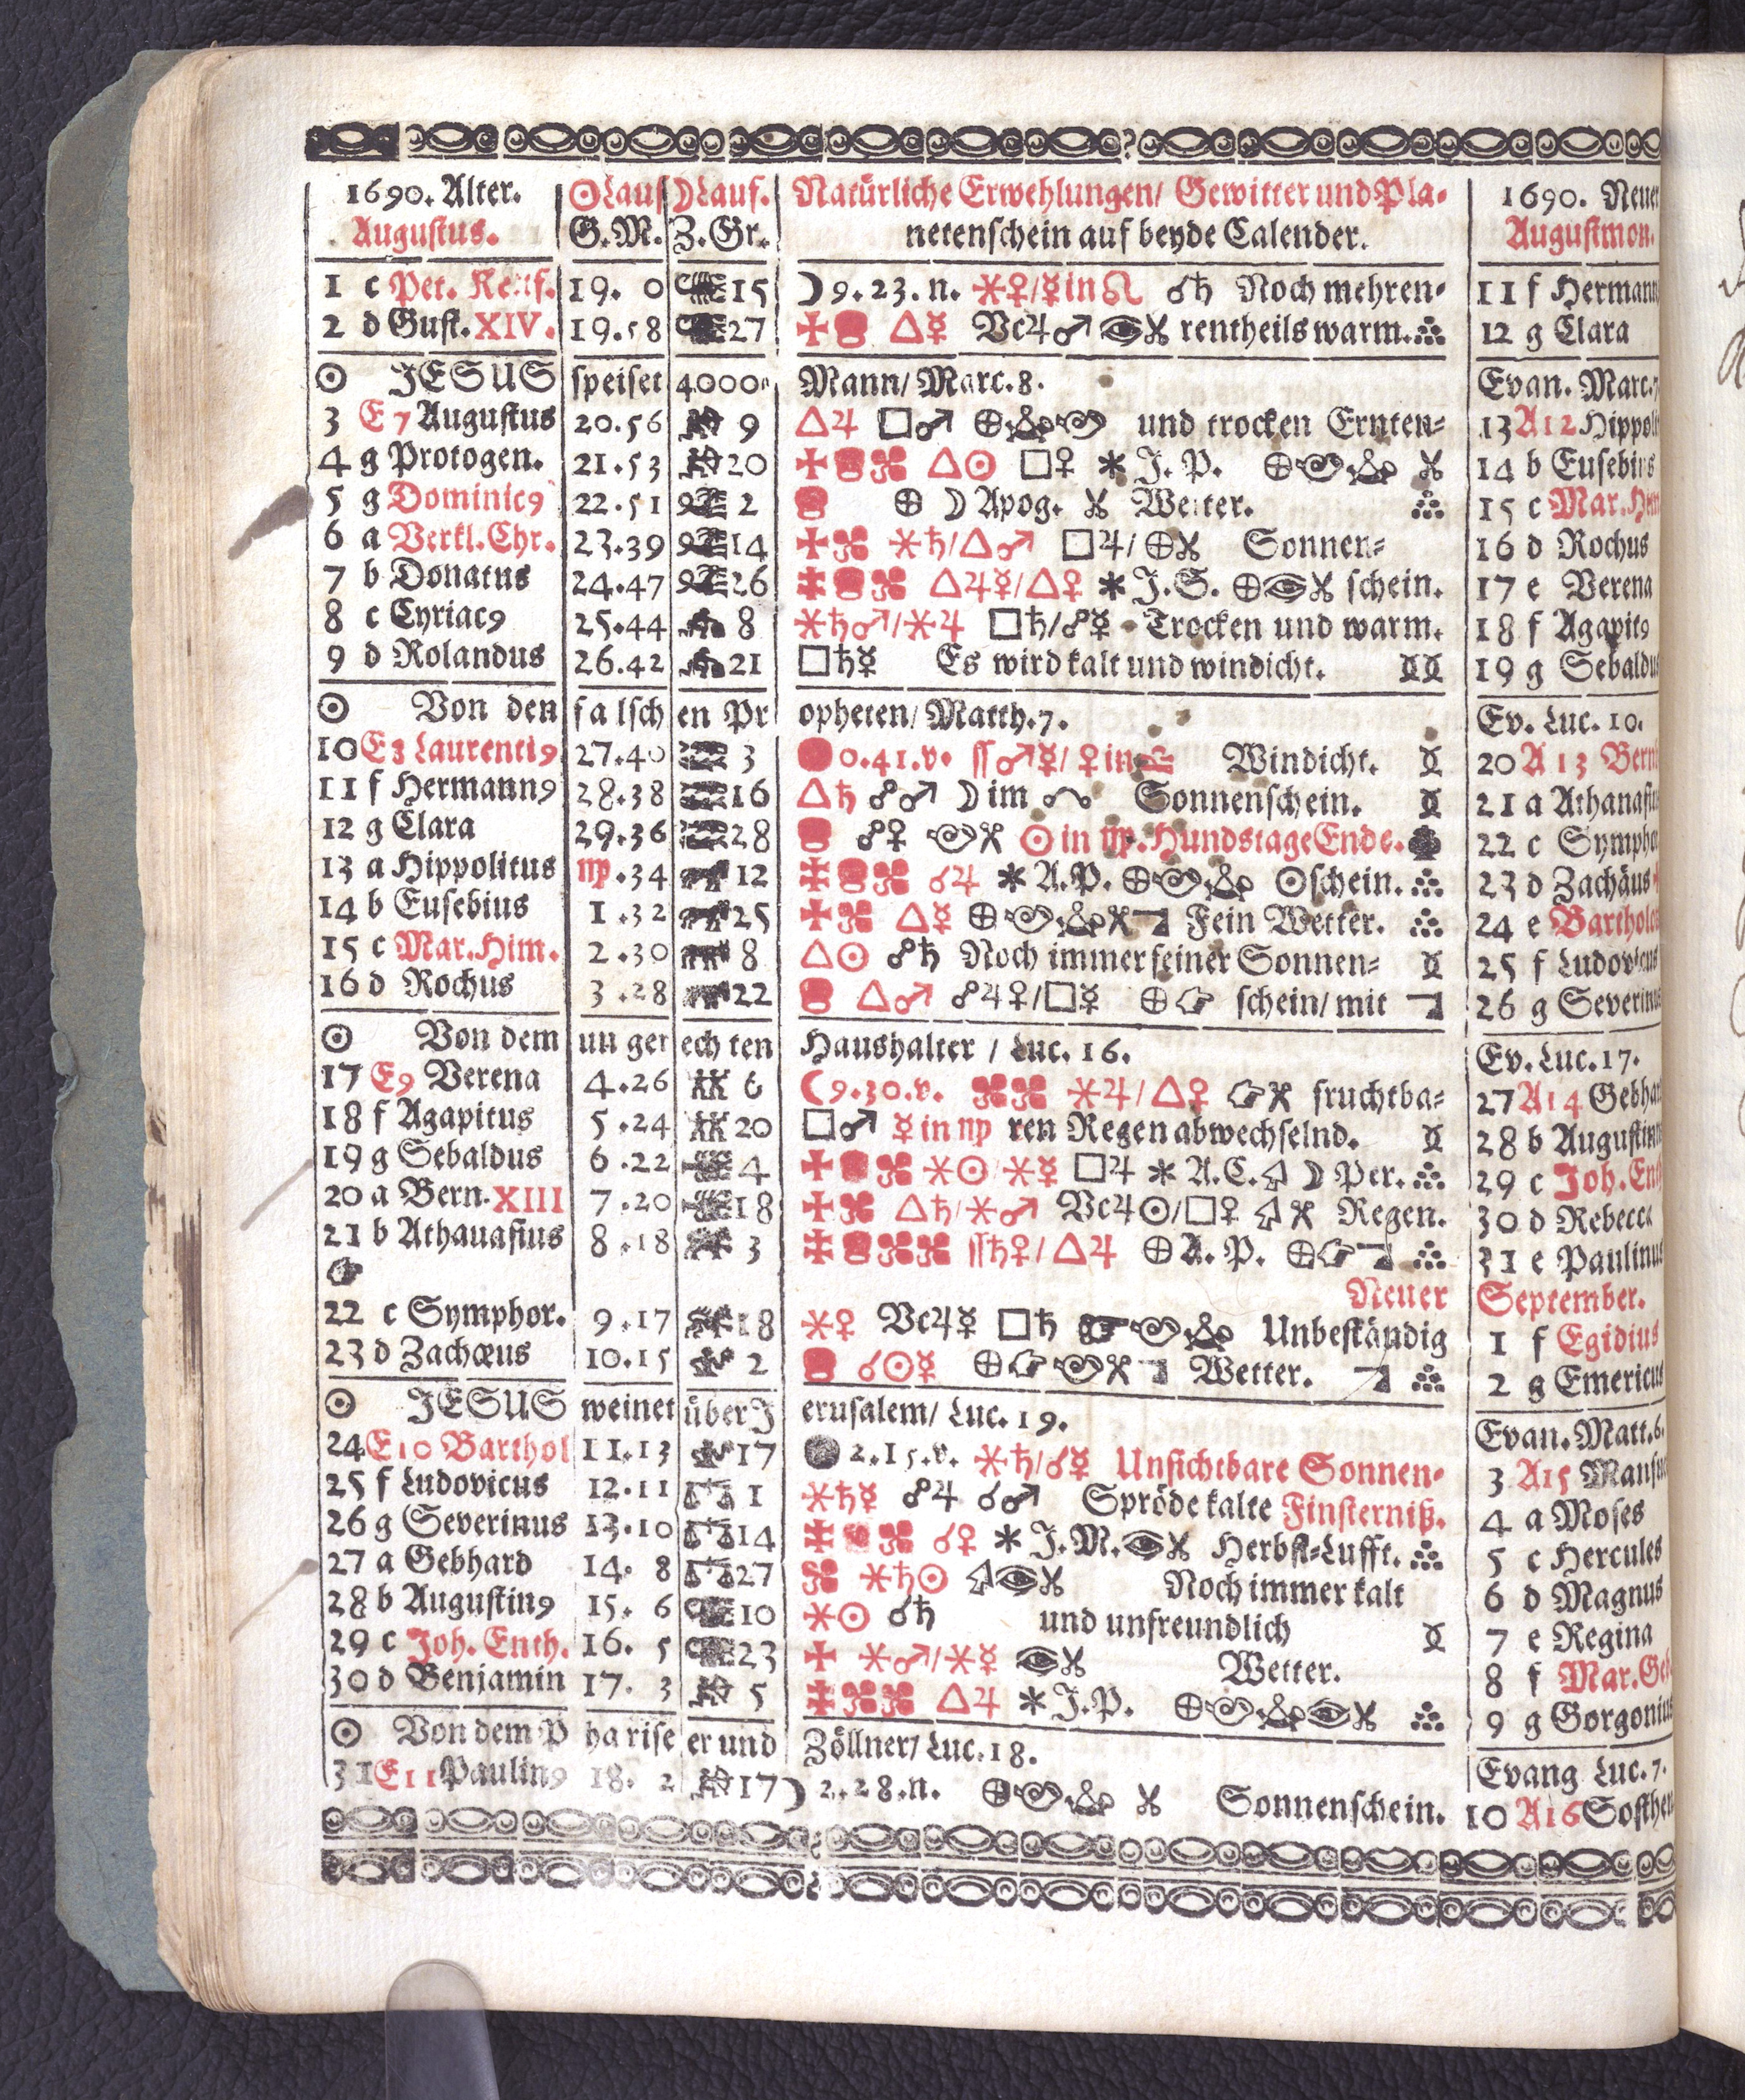 1690. Alter. ☉Lauf ☽Lauf. Natürliche Erwehlungen/ Gewitter und Pla- 1690. Neuer
Augustus. G.M. Z.Gr. netenschein auf beyde Calender. Augustmon.
1 c Pet. Kettf. 19. 0 15 ☽ 9.23.n. ⚹♀/☿in♌ ☌♄ Noch mehren- 11 f Hermann
2 d Gust. XIV. 19.58 27 △☿ Vc♃♂ rentheils warm. 12 g Clara
☉ JESUS speiset 4000 Mann/ Marc. 8. Evan. Marc. 7
3 E 7 Augustus 20.56 9 △♃ □♂ ⊕ und trocken Ernten- 13 A12 Hippol
4 g Protogen. 21.53 20 △☉ □♀ ⚹ J. P. ⊕ 14 b Eusebius
5 g Dominic9 22.51 2 ⊕ ☽ Apog. Wetter. 15 c Mar. Him
6 a Verkl. Chr. 23.39 14 ⚹♄/△♂ □♃/⊕ Sonnen- 16 d Rochus
7 b Donatus 24.47 26 △♃☿/△♀ ⚹ J. S. ⊕ schein. 17 e Verena
8 c Cyriac9 25.44 8 ⚹♄♂/⚹♃ □♄/☍☿ Trocken und warm. 18 f Agapit9
9 d Rolandus 26.42 21 □♄☿ Es wird kalt und windicht. 19 g Sebaldus
☉ Von den falschen Propheten/ Matth. 7. Ev. Luc. 10.
10 E8 Laurenti9 27.40 3 0.41.v. ♂☿/♀in♎ Windicht. 20 A 13 Bern
11 f Hermann9 28.38 16 △♄ ☍♂ ☽ im Sonnenschein. 21 a Athanasiu
12 g Clara 29.36 28 ☍♀ ☉ in ♍. Hundstage Ende. 22 c Sympho
13 a Hippolitus ♍.34 12 ☌♃ ⚹ A. P. ⊕ ☉schein. 23 d Zachäus
14 b Eusebius 1.32 25 △☿ ⊕ Fein Wetter. 24 e Bartholo
15 c Mar. Him. 2.30 8 △☉ ☍♄ Noch immer feiner Sonnen- 25 f Ludovicus
16 d Rochus 3.28 22 △♂ ☍♃♀/□☿ ⊕ schein/ mit 26 g Severinus
☉ Von dem ungerechten Haushalter / Luc. 16. Ev. Luc. 17.
17 E9 Verena 4.26 6 ☾ 9.30.v. ⚹♃/△♀ fruchtba- 27 A14 Gebhar
18 f Agapitus 5.24 20 □♂ ☿ in ♍ ren Regen abwechselnd. 28 b Augustin
19 g Sebaldus 6.22 4 ⚹☉/⚹☿ □♃ ⚹ A. C. ☽ Per. 29 c Joh. Ent
20 a Bern. XIII 7.20 18 △♄/⚹♂ Vc♃☉/□♀ Regen. 30 d Rebecca
21 b Athauasius 8.18 3 ♄♀/△♃ ⊕ A. P. ⊕ 31 e Paulinus
Neuer September.
22 c Symphor. 9.17 18 ⚹♀ Vc♃☿ □♄ Unbeständig 1 f Egidius
23 d Zachæus 10.15 2 ☌☉☿ ⊕ Wetter. 2 g Emericus
☉ JESUS weinet über Jerusalem/ Luc. 19. Evan. Matt. 6.
24 E10 Barthol 11.13 17 2.15.v. ⚹♄/☌☿ Unsichtbare Sonnen- 3 A15 Mansue
25 f Ludovicus 12.11 1 ⚹♄☿ ☍♃ ☌♂ Spröde kalte Finsterniß. 4 a Moses
26 g Severinus 13.10 14 ☌♀ ⚹ J. M. Herbst-Lufft. 5 c Hercules
27 a Gebhard 14. 8 27 ⚹♄☉ Noch immer kalt 6 d Magnus
28 b Augustin9 15. 6 10 ⚹☉ ☌♄ und unfreundlich 7 e Regina
29 c Joh. Enth. 16. 5 23 ⚹♂/⚹☿ Wetter. 8 f Mar. Geb
30 d Benjamin 17. 3 5 △♃ ⚹ J. P. ⊕ 9 g Gorgonius
☉ Von dem Phariseer und Zöllner/ Luc. 18. Evang Luc. 7.
31 E11 Paulin9 18. 2 17 ☽ 2.28.n. ⊕ Sonnenschein. 10 A16 Sosthen